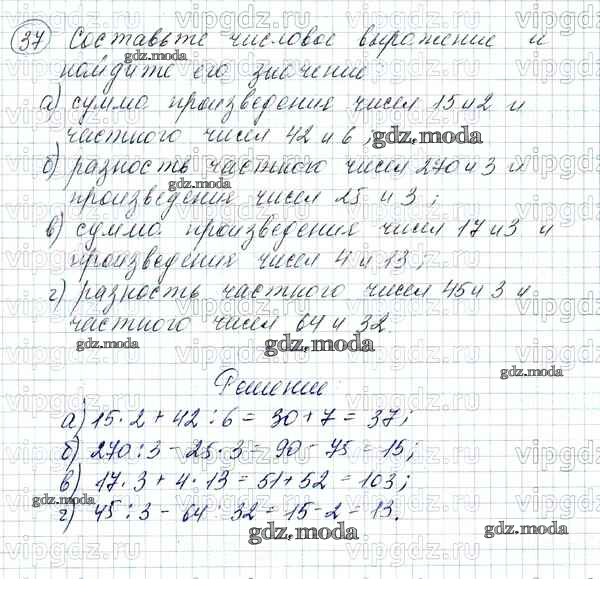 37 Составьте числовое выражение и
найдите его значение
а) сумма произведения чисел 15 и 2 и
частного чисел 42 и 6;
б) разность частного чисел 270 и 3 и
произведения чисел 25 и 3;
в) сумма произведения чисел 17 и 3 и
произведения чисел 4 и 13;
г) разность частного чисел 45 и 3 и
частного чисел 64 и 32.
Решение:
а) 15 · 2 + 42 : 6 = 30 + 7 = 37;
б) 270 : 3 - 25 · 3 = 90 - 75 = 15;
в) 17 · 3 + 4 · 13 = 51 + 52 = 103;
г) 45 : 3 - 64 : 32 = 15 - 2 = 13.
gdz.moda
gdz.moda
gdz.moda
gdz.moda
gdz.moda
gdz.moda
gdz.moda
gdz.moda
gdz.moda
vipgdz.ru